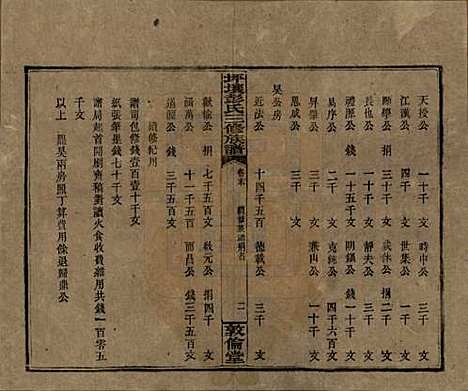 天授公 一十千文 時中公 三千文
江漢公 四千文 世集公 三千文
聯學公 捐三千文 公 捐二千文
長也公 十千文 靜夫公 三千文
禮源公 錢一十五千文 開鎮公 錢一千文
易序公 二千文 公 四千六百文
昇舉公 三千文 葉山公 一十千文
恩成公 三千文
昊公房
近法公 十四千五百文 德載公 三千文
坪壤彭氏三修族譜
卷末
二
敦倫堂
獻榆公 捐七千五百文 啟元公 捐四千文
公 十一千文 而昌公 錢三千五百文
過源公 錢三千五百文
續修紀用
譜司包修錢壹百壹十千文
紙張筆墨錢七十千文
譜局起首開刷齊稿對讀火食收費雜用共錢一百零五
千文
以上 羆昊兩房照丁算費用餘退歸鼎公